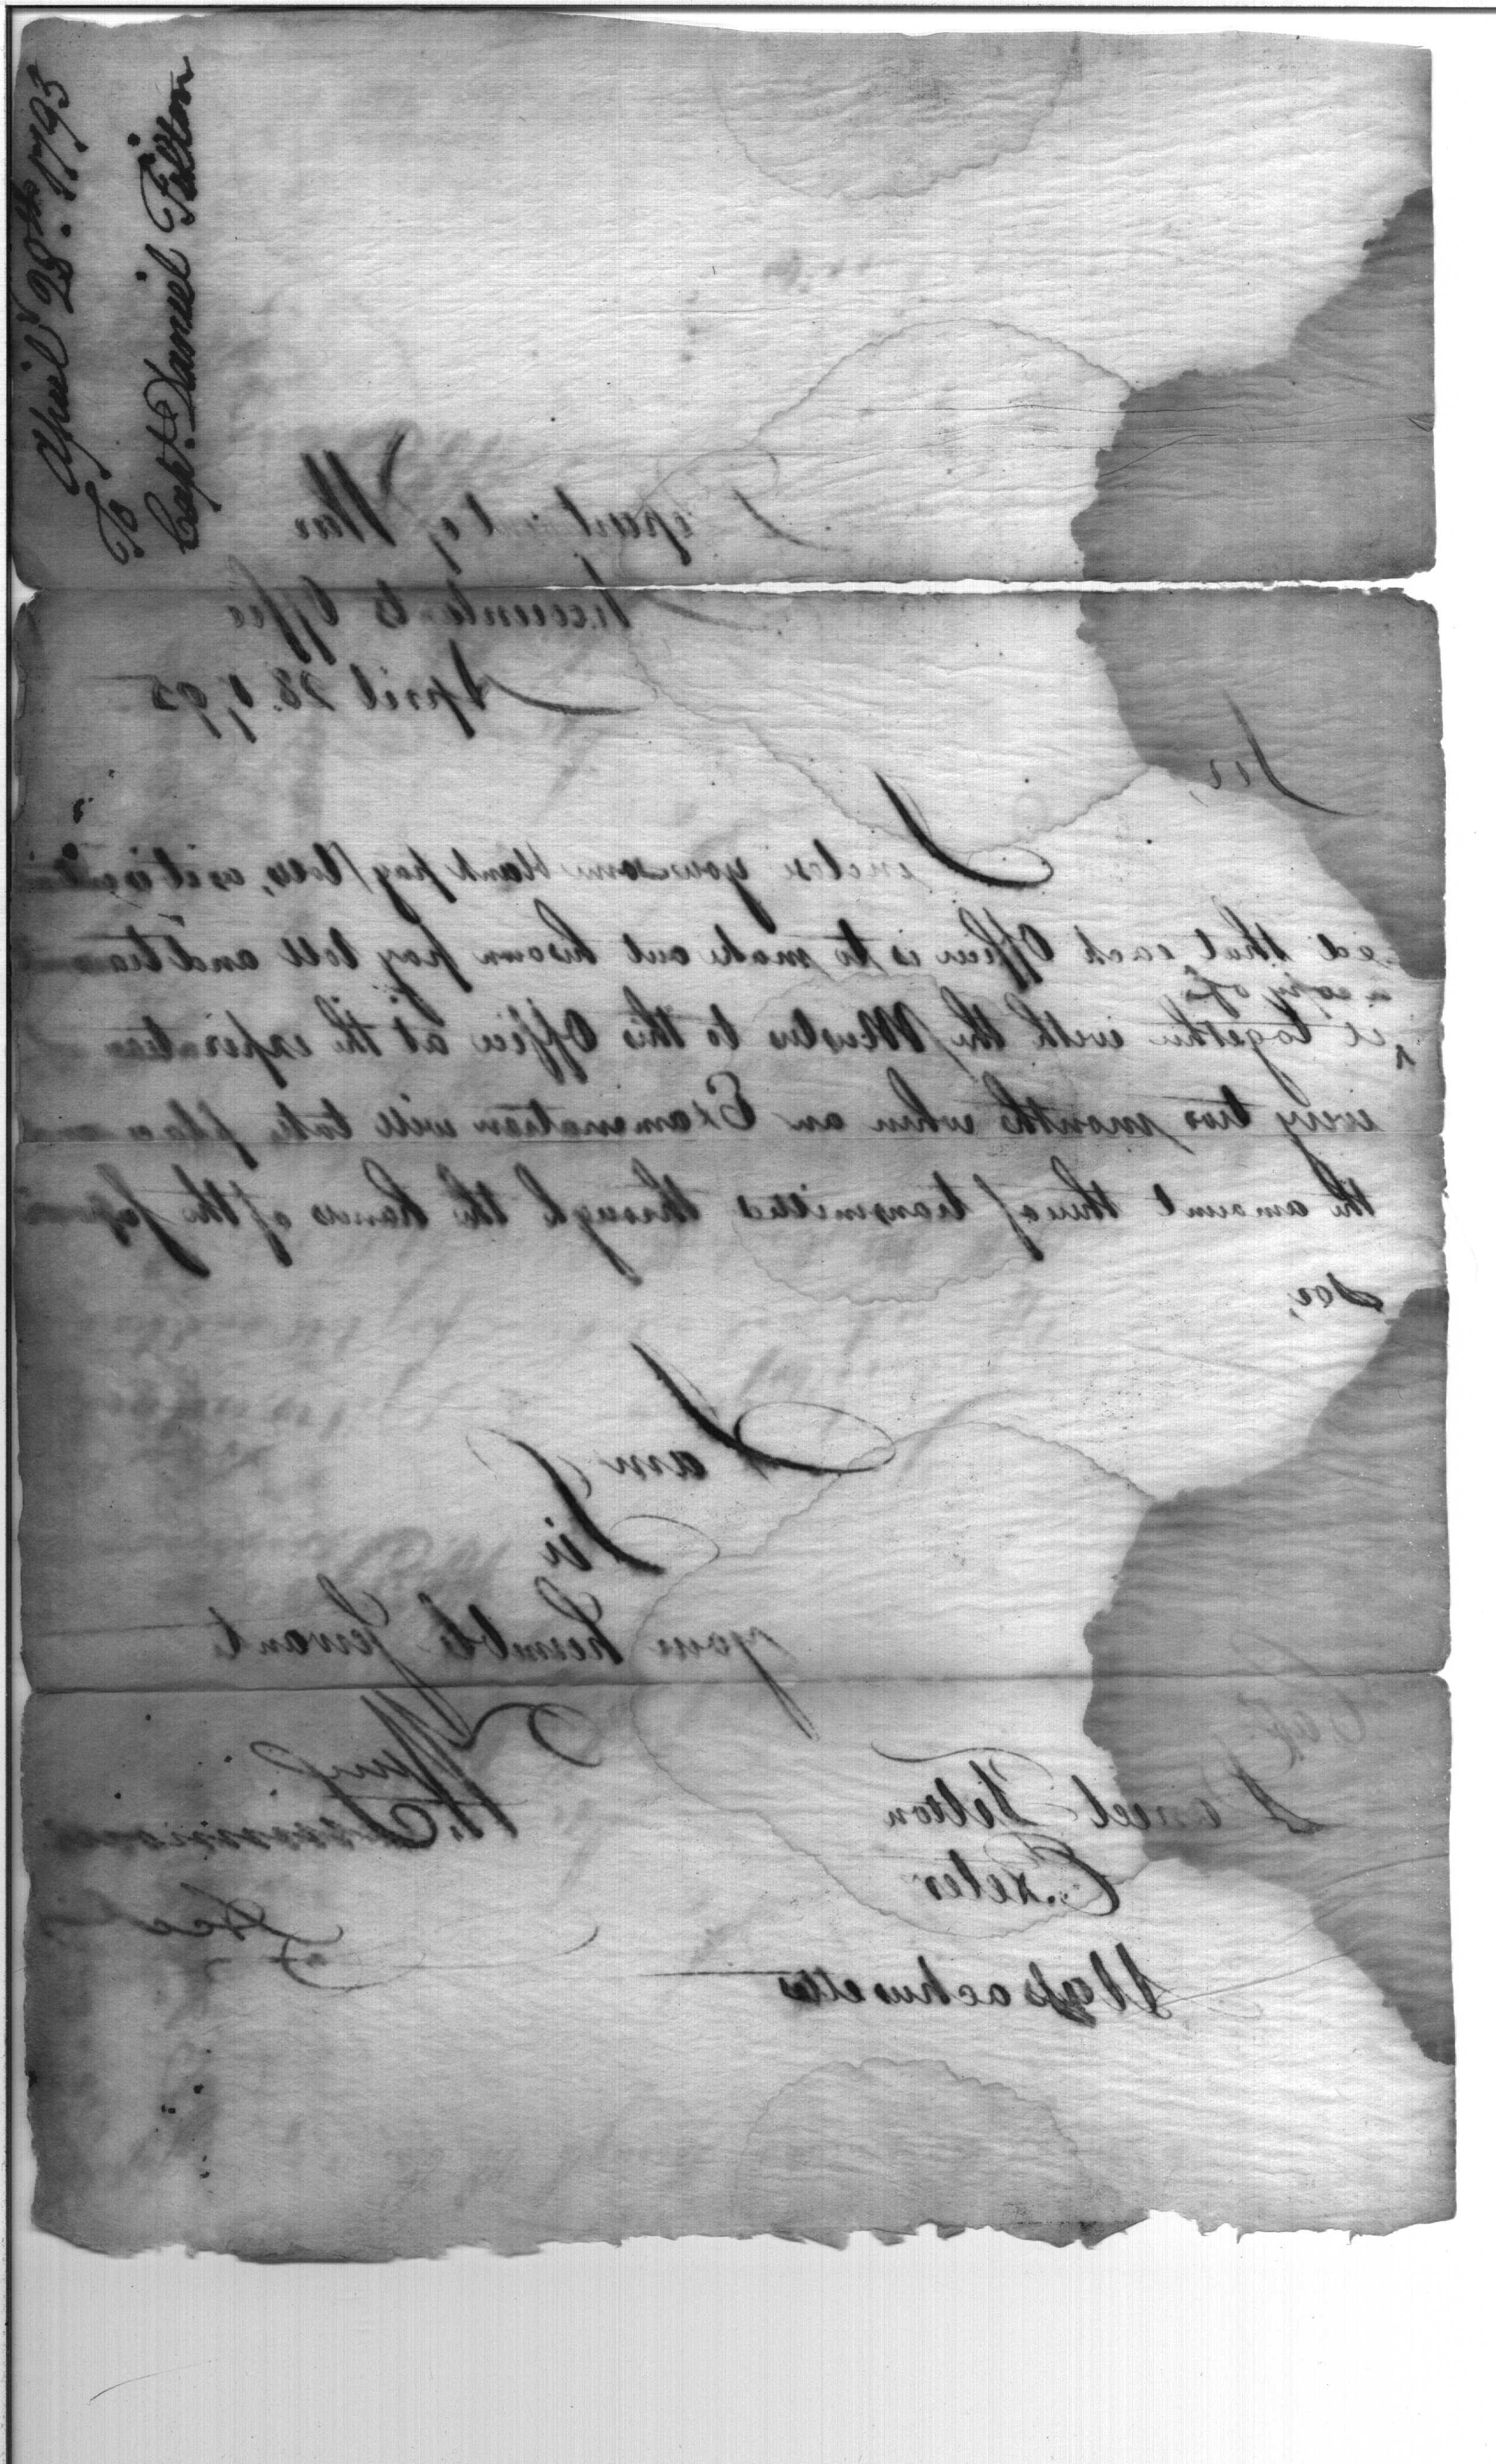 April 28th. 1795
To
Capt. Daniel Tilton
Department of War
Accountants Office
April 28. 1795
Sir,
I enclose you some blank pay Rolls, it is
that each Officer is to make out his own pay Roll and
a copy of
it together with the Musters to this Office at the expiration
every two months when an Examination will take place and
the amount thereof transmitted through the hands of the
I am
Sir
your humble Servant
W. Simmons
Capt
Daniel Tilton
Exeter
Massachusetts